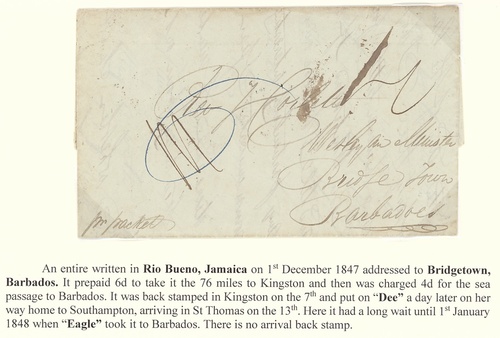 Wesleyan Minister
Bridge Town
Barbadoes
pr packet
An entire written in Rio Bueno, Jamaica on 1st December 1847 addressed to Bridgetown,
Barbados. It prepaid 6d to take it the 76 miles to Kingston and then was charged 4d for the sea
passage to Barbados. It was back stamped in Kingston on the 7th and put on “Dee” a day later on her
way home to Southampton, arriving in St Thomas on the 13th. Here it had a long wait until 1st January
1848 when “Eagle” took it to Barbados. There is no arrival back stamp.